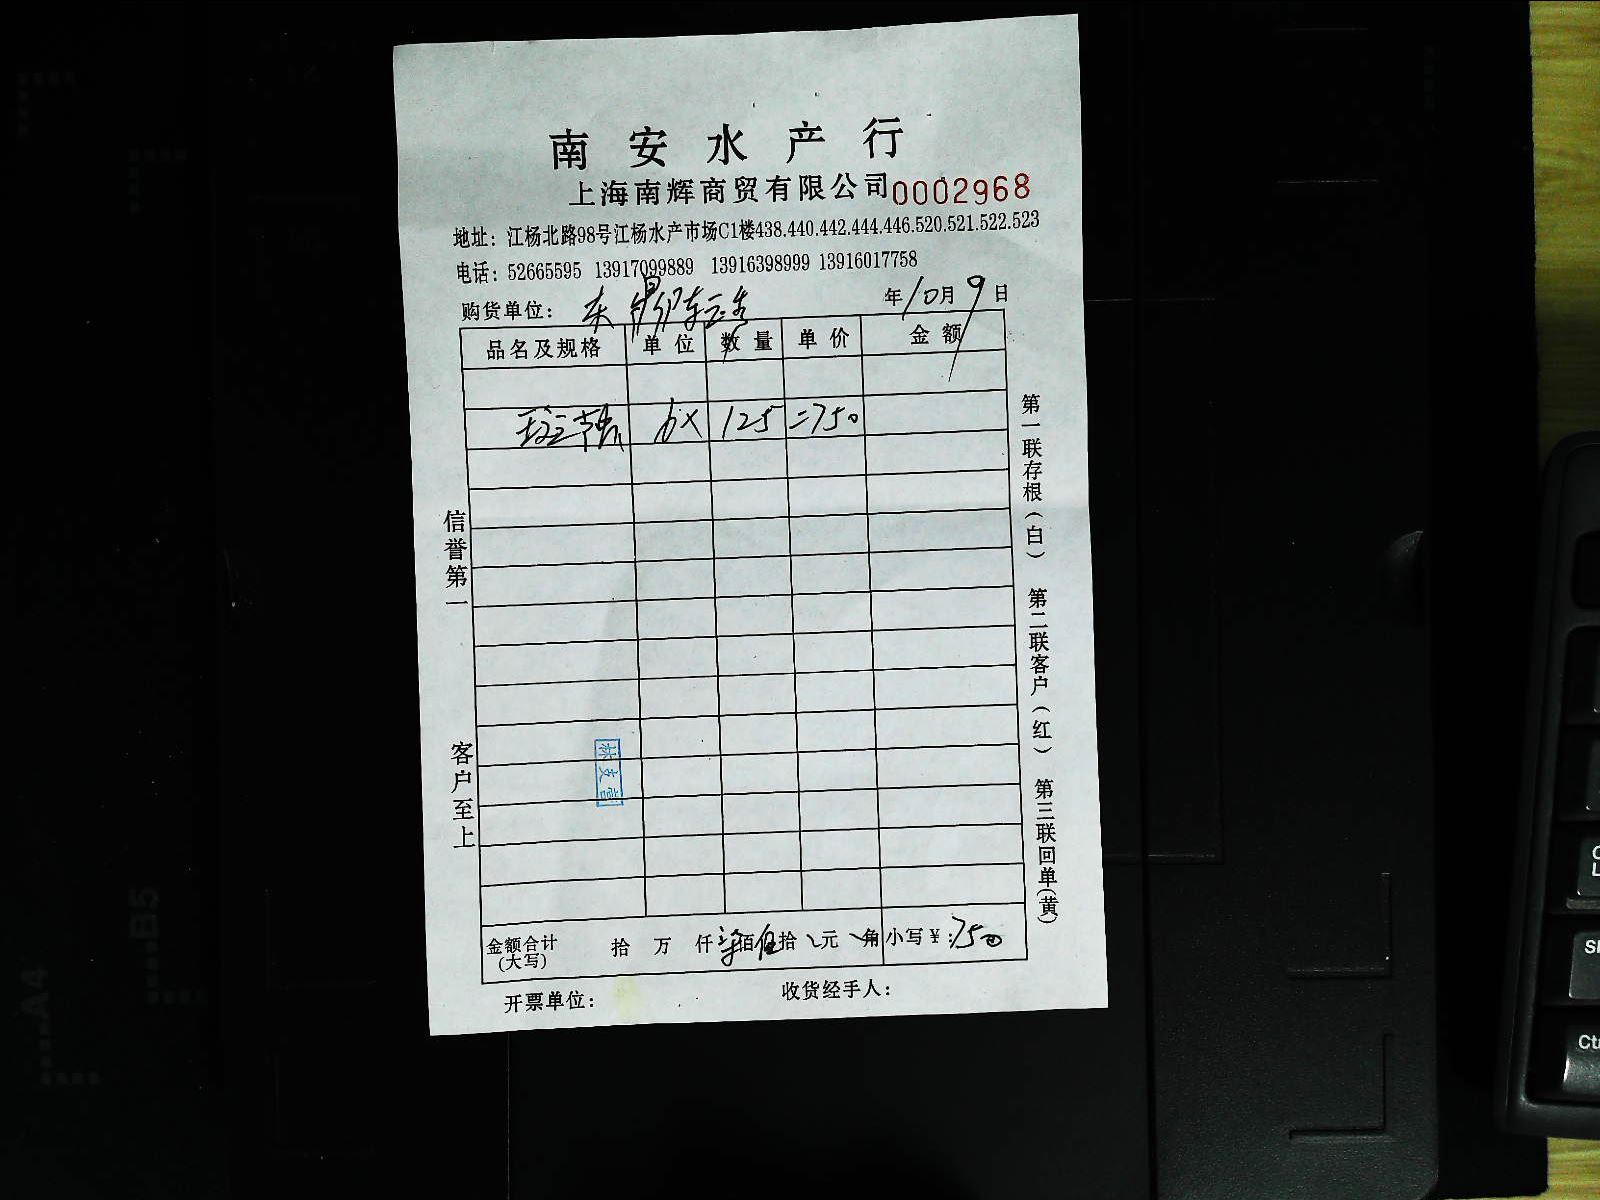 南安水产行
上海南辉商贸有限公司 0002968
地址：江杨北路98号江杨水产市场C1楼438.440.442.444.446.520.521.522.523
电话：52665595 13917099889 13916398999 13916017758
购货单位： 东 年10月9日
品名及规格 单位 数量 单价 金额
斑节 6× 125 =750
信誉第一
客户至上
第一联存根(白) 第二联客户(红) 第三联回单(黄)
金额合计(大写) 拾 万 仟 柒佰 伍拾 元 角 小写￥:750
开票单位： 收货经手人：
B5
A4
Ctr